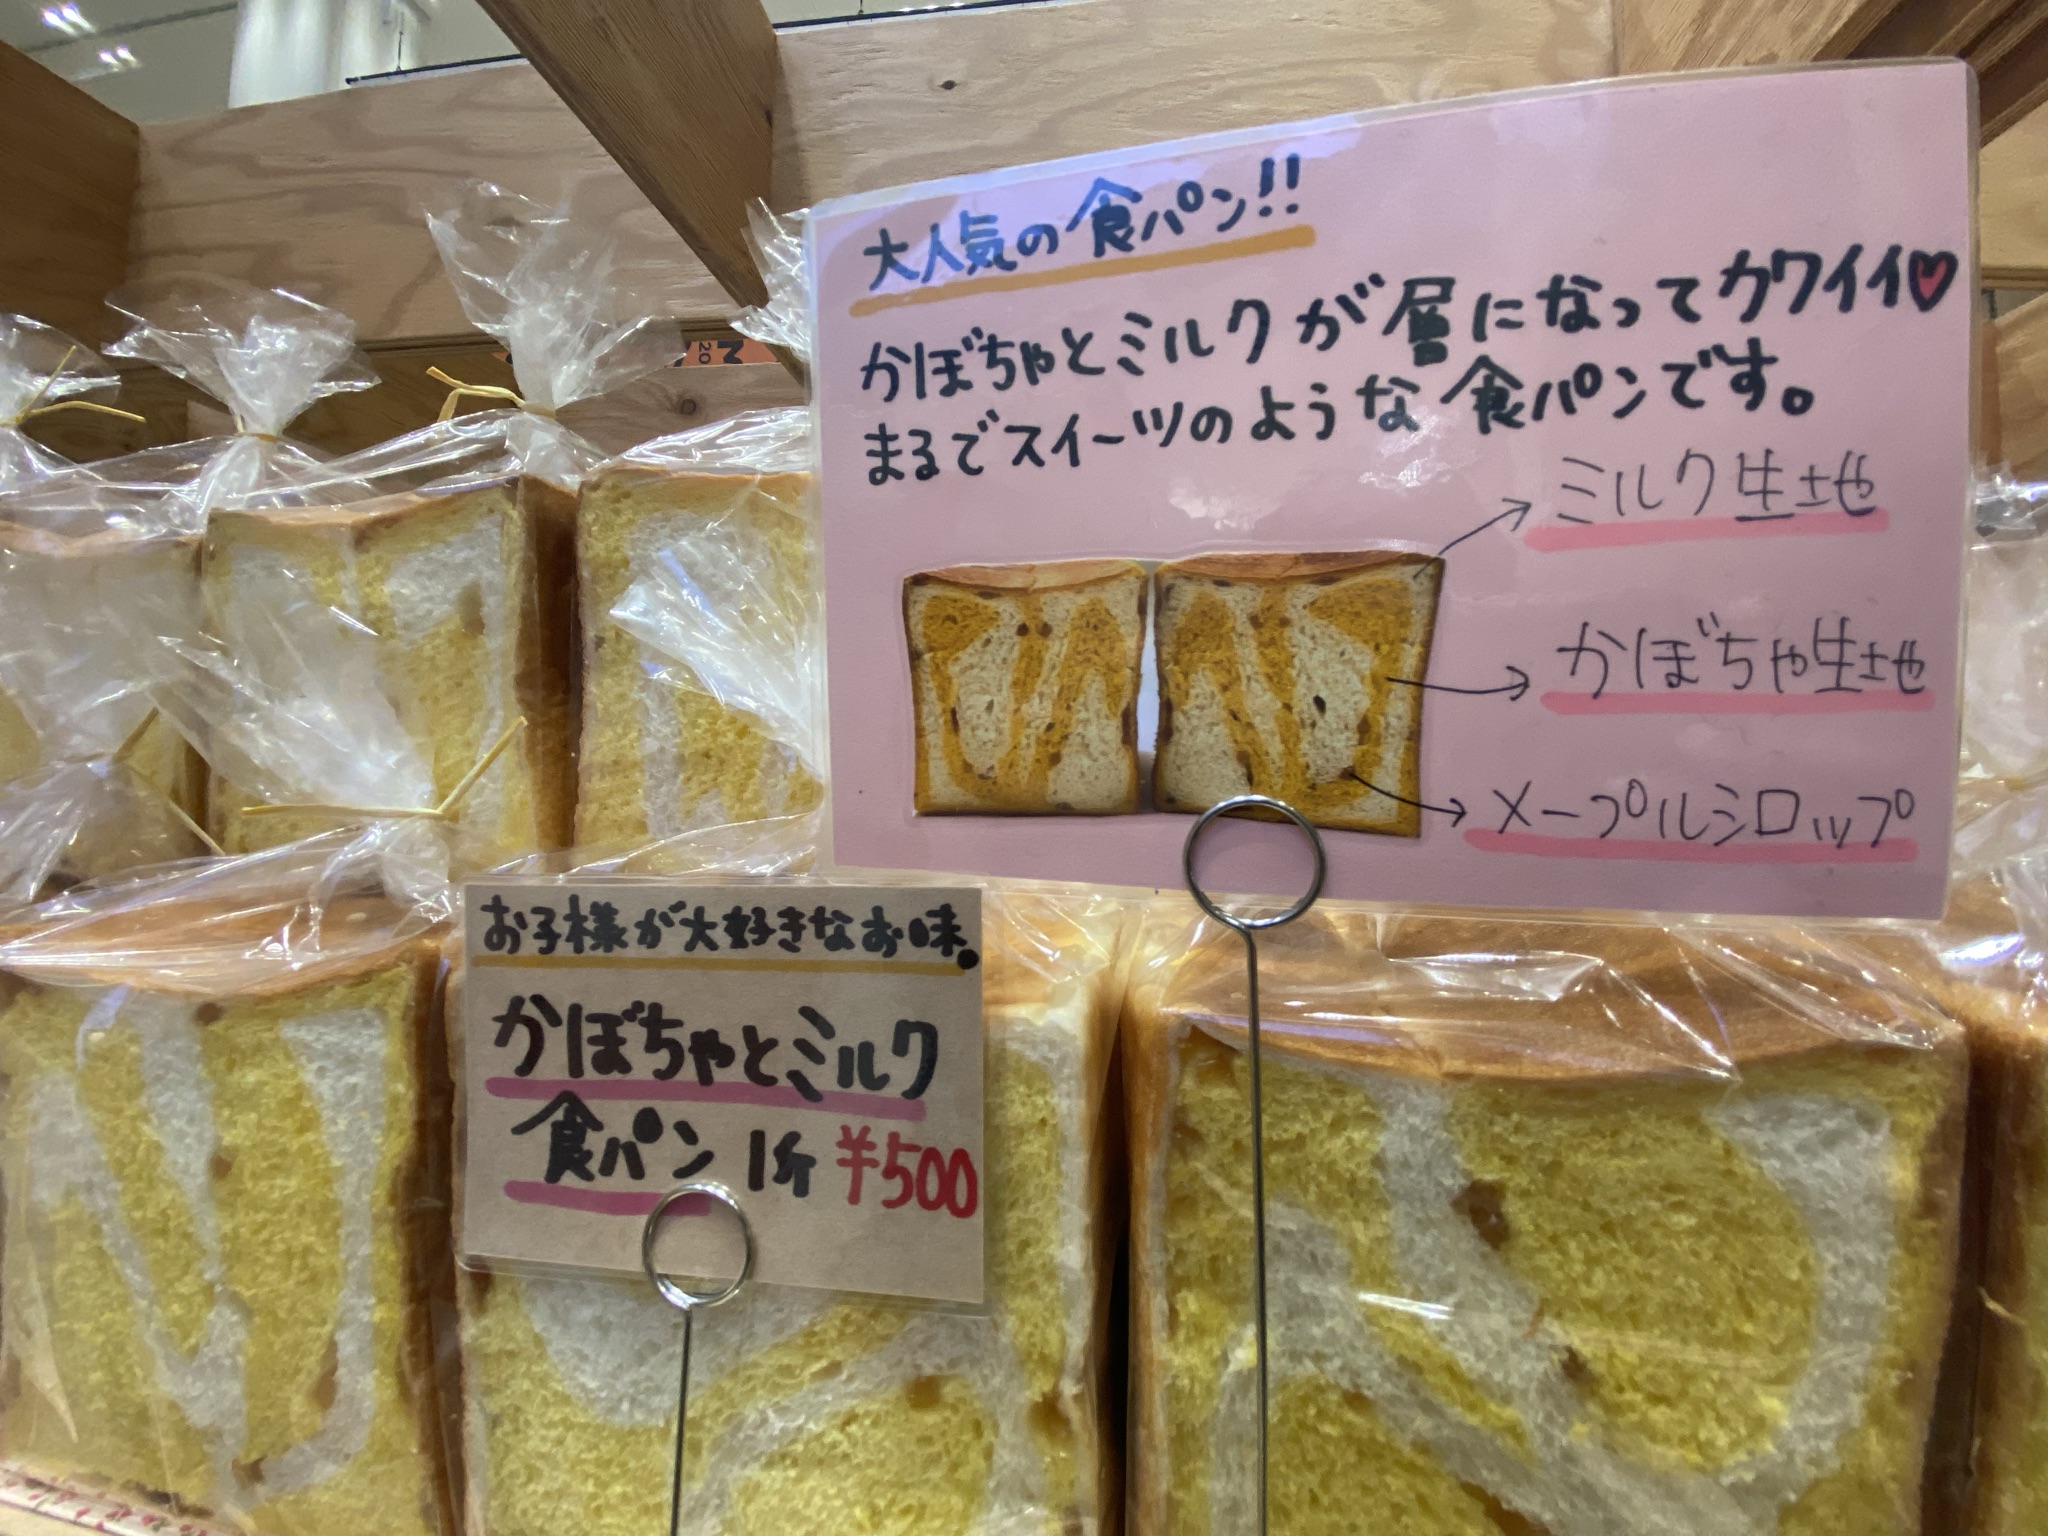 大人気の食パン!!
かぼちゃとミルクが層になってカワイイ♡
まるでスイーツのような食パンです。
ミルク生地
かぼちゃ生地
メープルシロップ
お子様が大好きなお味。
かぼちゃとミルク
食パン 1斤 ¥500
M
20